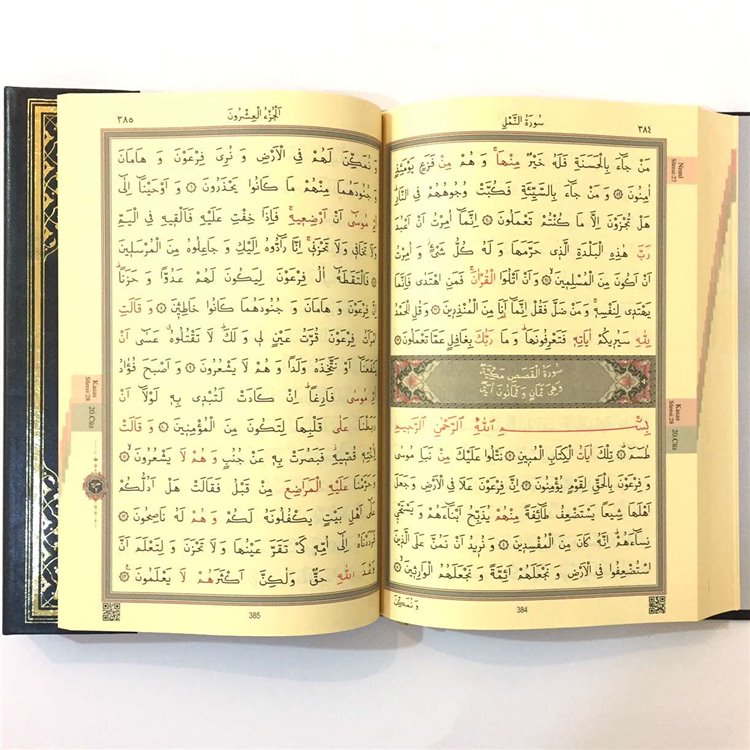 سُورَةُ النَّمْلِ
٣٨٤
مَنْ جَاءَ بِالْحَسَنَةِ فَلَهُ خَيْرٌ مِنْهَا وَ هُمْ مِنْ فَزَعٍ يَوْمَئِذٍ
اٰمِنُونَ ﴿٨٩﴾ وَ مَنْ جَاءَ بِالسَّيِّئَةِ فَكُبَّتْ وُجُوهُهُمْ فِي النَّارِ
هَلْ تُجْزَوْنَ اِلَّا مَا كُنْتُمْ تَعْمَلُونَ ﴿٩٠﴾ اِنَّمَا اُمِرْتُ اَنْ اَعْبُدَ
رَبَّ هٰذِهِ الْبَلْدَةِ الَّذِي حَرَّمَهَا وَ لَهُ كُلُّ شَيْءٍ وَ اُمِرْتُ
اَنْ اَكُونَ مِنَ الْمُسْلِمِينَ ﴿٩١﴾ وَ اَنْ اَتْلُوَا الْقُرْاٰنَ فَمَنِ اهْتَدٰى فَاِنَّمَا
يَهْتَدِي لِنَفْسِهِ وَ مَنْ ضَلَّ فَقُلْ اِنَّمَا اَنَا مِنَ الْمُنْذِرِينَ ﴿٩٢﴾ وَ قُلِ الْحَمْدُ
لِلّٰهِ سَيُرِيكُمْ اٰيَاتِهِ فَتَعْرِفُونَهَا وَ مَا رَبُّكَ بِغَافِلٍ عَمَّا تَعْمَلُونَ ﴿٩٣﴾
سُورَةُ الْقَصَصِ مَكِّيَّةٌ
وَهِيَ ثَمَانٍ وَ ثَمَانُونَ اٰيَةً
بِسْمِ اللّٰهِ الرَّحْمٰنِ الرَّحِيمِ
طٰسٓمٓ ﴿١﴾ تِلْكَ اٰيَاتُ الْكِتَابِ الْمُبِينِ ﴿٢﴾ نَتْلُوا عَلَيْكَ مِنْ نَبَاِ مُوسٰى
وَ فِرْعَوْنَ بِالْحَقِّ لِقَوْمٍ يُؤْمِنُونَ ﴿٣﴾ اِنَّ فِرْعَوْنَ عَلَا فِي الْاَرْضِ وَ جَعَلَ
اَهْلَهَا شِيَعًا يَسْتَضْعِفُ طَائِفَةً مِنْهُمْ يُذَبِّحُ اَبْنَاءَهُمْ وَ يَسْتَحْيِي
نِسَاءَهُمْ اِنَّهُ كَانَ مِنَ الْمُفْسِدِينَ ﴿٤﴾ وَ نُرِيدُ اَنْ نَمُنَّ عَلَى الَّذِينَ
اسْتُضْعِفُوا فِي الْاَرْضِ وَ نَجْعَلَهُمْ اَئِمَّةً وَ نَجْعَلَهُمُ الْوَارِثِينَ ﴿٥﴾
وَ نُمَكِّنَ
384
Neml
Sûresi:27
Kasas
Sûresi:28
20.Cüz
اَلْجُزْءُ الْعِشْرُونَ
٣٨٥
وَ نُمَكِّنَ لَهُمْ فِي الْاَرْضِ وَ نُرِيَ فِرْعَوْنَ وَ هَامَانَ
وَ جُنُودَهُمَا مِنْهُمْ مَا كَانُوا يَحْذَرُونَ ﴿٦﴾ وَ اَوْحَيْنَا اِلٰى
مُوسٰى اَنْ اَرْضِعِيهِ فَاِذَا خِفْتِ عَلَيْهِ فَاَلْقِيهِ فِي الْيَمِّ
وَ لَا تَخَافِي وَ لَا تَحْزَنِي اِنَّا رَادُّوهُ اِلَيْكِ وَ جَاعِلُوهُ مِنَ الْمُرْسَلِينَ ﴿٧﴾
فَالْتَقَطَهُ اٰلُ فِرْعَوْنَ لِيَكُونَ لَهُمْ عَدُوًّا وَ حَزَنًا
فِرْعَوْنَ وَ هَامَانَ وَ جُنُودَهُمَا كَانُوا خَاطِئِينَ ﴿٨﴾ وَ قَالَتِ
فِرْعَوْنَ قُرَّتُ عَيْنٍ لِي وَ لَكَ لَا تَقْتُلُوهُ عَسٰى اَنْ
اَوْ نَتَّخِذَهُ وَلَدًا وَ هُمْ لَا يَشْعُرُونَ ﴿٩﴾ وَ اَصْبَحَ فُؤٰادُ
مُوسٰى فَارِغًا اِنْ كَادَتْ لَتُبْدِي بِهِ لَوْلَا اَنْ
عَلٰى قَلْبِهَا لِتَكُونَ مِنَ الْمُؤْمِنِينَ ﴿١٠﴾ وَ قَالَتْ
قُصِّيهِ فَبَصُرَتْ بِهِ عَنْ جُنُبٍ وَ هُمْ لَا يَشْعُرُونَ ﴿١١﴾
وَ حَرَّمْنَا عَلَيْهِ الْمَرَاضِعَ مِنْ قَبْلُ فَقَالَتْ هَلْ اَدُلُّكُمْ
عَلٰى اَهْلِ بَيْتٍ يَكْفُلُونَهُ لَكُمْ وَ هُمْ لَهُ نَاصِحُونَ ﴿١٢﴾
فَرَدَدْنَاهُ اِلٰى اُمِّهِ كَيْ تَقَرَّ عَيْنُهَا وَ لَا تَحْزَنَ وَ لِتَعْلَمَ اَنَّ
وَعْدَ اللّٰهِ حَقٌّ وَ لٰكِنَّ اَكْثَرَهُمْ لَا يَعْلَمُونَ ﴿١٣﴾
385
Kasas
Sûresi:28
20.Cüz